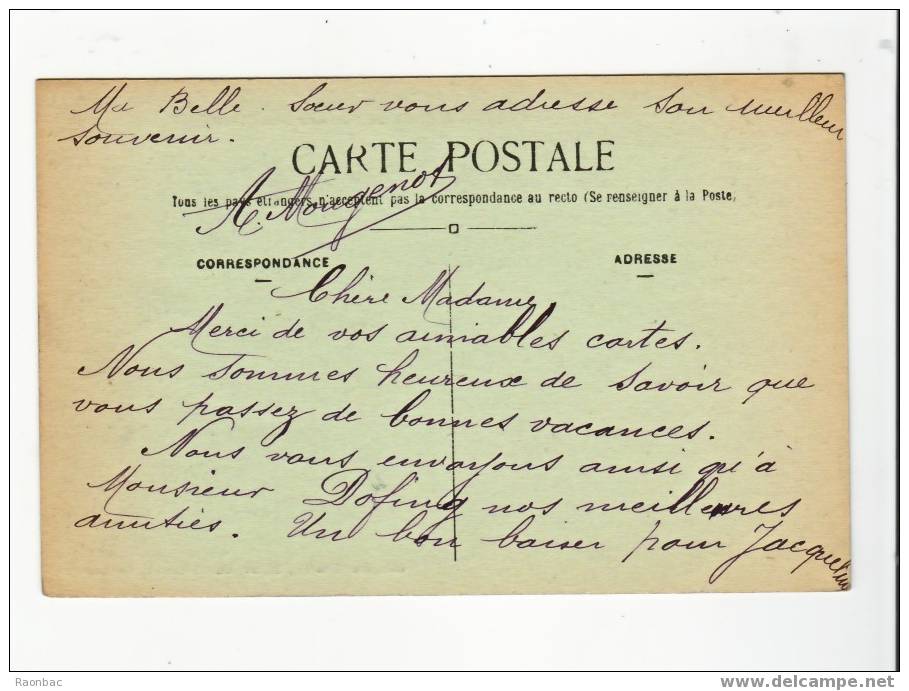 Ma Belle. Soeur vous adresse son meilleur
souvenir.
CARTE POSTALE
Tous les pays étrangers n'acceptent pas la correspondance au recto (Se renseigner à la Poste)
A. Mougenot
CORRESPONDANCE
ADRESSE
Chère Madame
Merci de vos aimables cartes.
Nous sommes heureux de savoir que
vous passez de bonnes vacances.
Nous vous envoyons ainsi qu'à
Monsieur Dofing nos meilleures
amitiés. Un bon baiser pour Jacqueline
Raonbac
www.delcampe.net